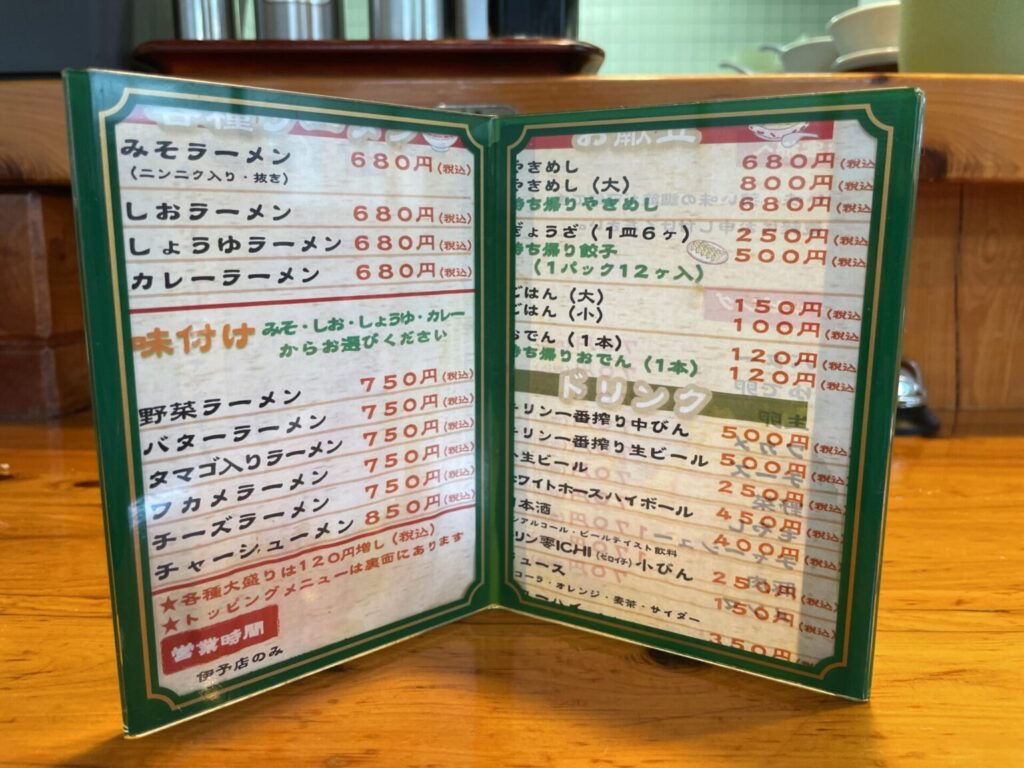 各種ラーメン
みそラーメン 680円(税込)
(ニンニク入り・抜き)
しおラーメン 680円(税込)
しょうゆラーメン 680円(税込)
カレーラーメン 680円(税込)
味付け みそ・しお・しょうゆ・カレー
からお選びください
野菜ラーメン 750円(税込)
バターラーメン 750円(税込)
タマゴ入りラーメン 750円(税込)
ワカメラーメン 750円(税込)
チーズラーメン 750円(税込)
チャーシューメン 850円(税込)
★各種大盛りは120円増し(税込)
★トッピングメニューは裏面にあります
営業時間
伊予店のみ
お献立
やきめし 680円(税込)
やきめし(大) 800円(税込)
持ち帰りやきめし 680円(税込)
ぎょうざ(1皿6ヶ) 250円(税込)
持ち帰り餃子 500円(税込)
(1パック12ヶ入)
ごはん(大) 150円(税込)
ごはん(小) 100円(税込)
おでん(1本) 120円(税込)
持ち帰りおでん(1本) 120円(税込)
ドリンク
キリン一番搾り中びん 500円(税込)
キリン一番搾り生ビール 500円(税込)
生ビール 250円(税込)
ホワイトホースハイボール 450円(税込)
日本酒 400円(税込)
ノンアルコール・ビールテイスト飲料
キリン零ICHI(ゼロイチ)小びん 250円(税込)
ジュース 150円(税込)
コーラ・オレンジ・麦茶・サイダー
350円(税込)